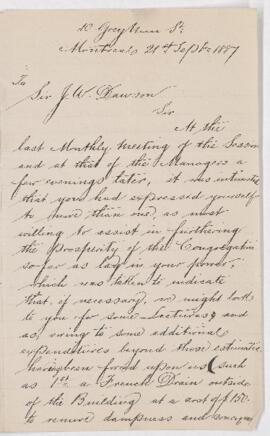 Montreal 21st Septbr 1887
To
Sir J. W. Dawson
Sir
At the
last Monthly meeting of the Session
and at that of the Managers a
few evenings later, it was intimated
that you had expressed yourself
to more than one, as most
willing to assist in furthering
the prosperity of the Congregation
so far as lay in your power,
which was taken to indicate
that, if necessary, we might look
to you for some Lectures, and
as, owing to some additional
expenditures beyond those estimated
having been forced upon us (such
as 1st a French Drain outside
of the Building at a cost of 150.
to remove dampness and